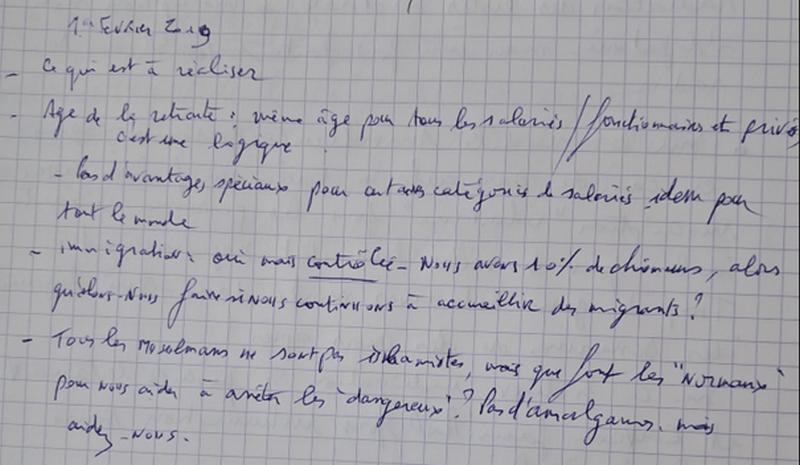 1er Février 2019
- Ce qui est à réaliser
- Age de la retraite : même âge pour tous les salariés / fonctionnaires et privés
c'est une logique.
- Pas d'avantages spéciaux pour certaines catégories de salariés idem pour
tout le monde
- immigration : oui mais contrôlée - Nous avons 10% de chômeurs, alors
qu'allons-Nous faire si Nous continuons à accueillir des migrants ?
- Tous les Musulmans ne sont pas islamistes, mais que font les "Normaux"
pour nous aider à arrêter les "dangereux" ? Pas d'amalgames. mais
aidez-nous.